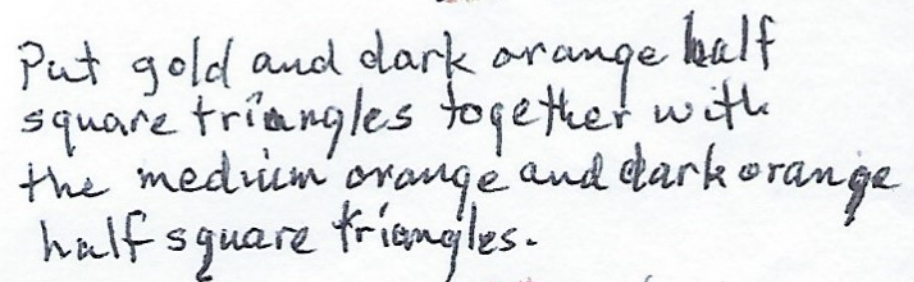 Put gold and dark orange half
square triangles together with
the medium orange and dark orange
half square triangles.